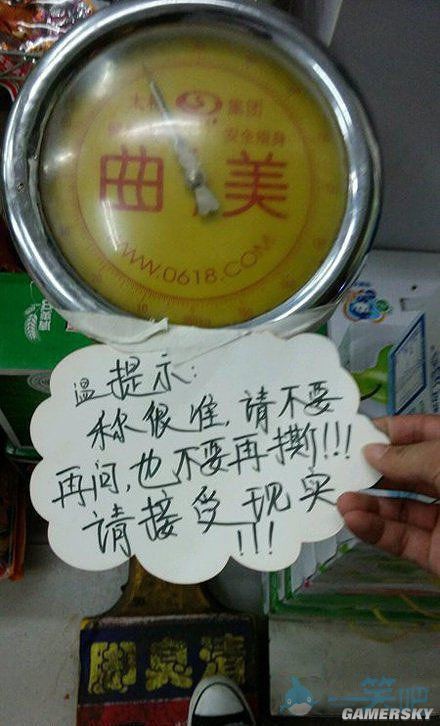 集团
安全瘦身
曲美
WWW.0618.COM
温提示:
称很准,请不要
再问,也不要再撕!!!
请接受现实
!!!
一笑吧
GAMERSKY